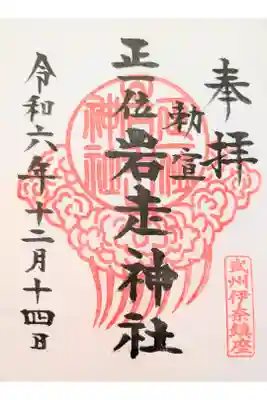 奉拝
勅宣
正一位
岩走神社
令和六年十二月十四日
武州伊奈鎮座